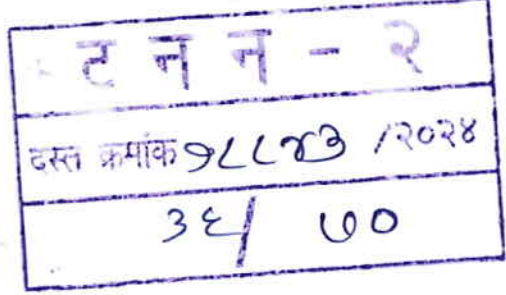 ट न न - २
दस्त क्रमांक १८८४३ /२०२४
३६/ ७०